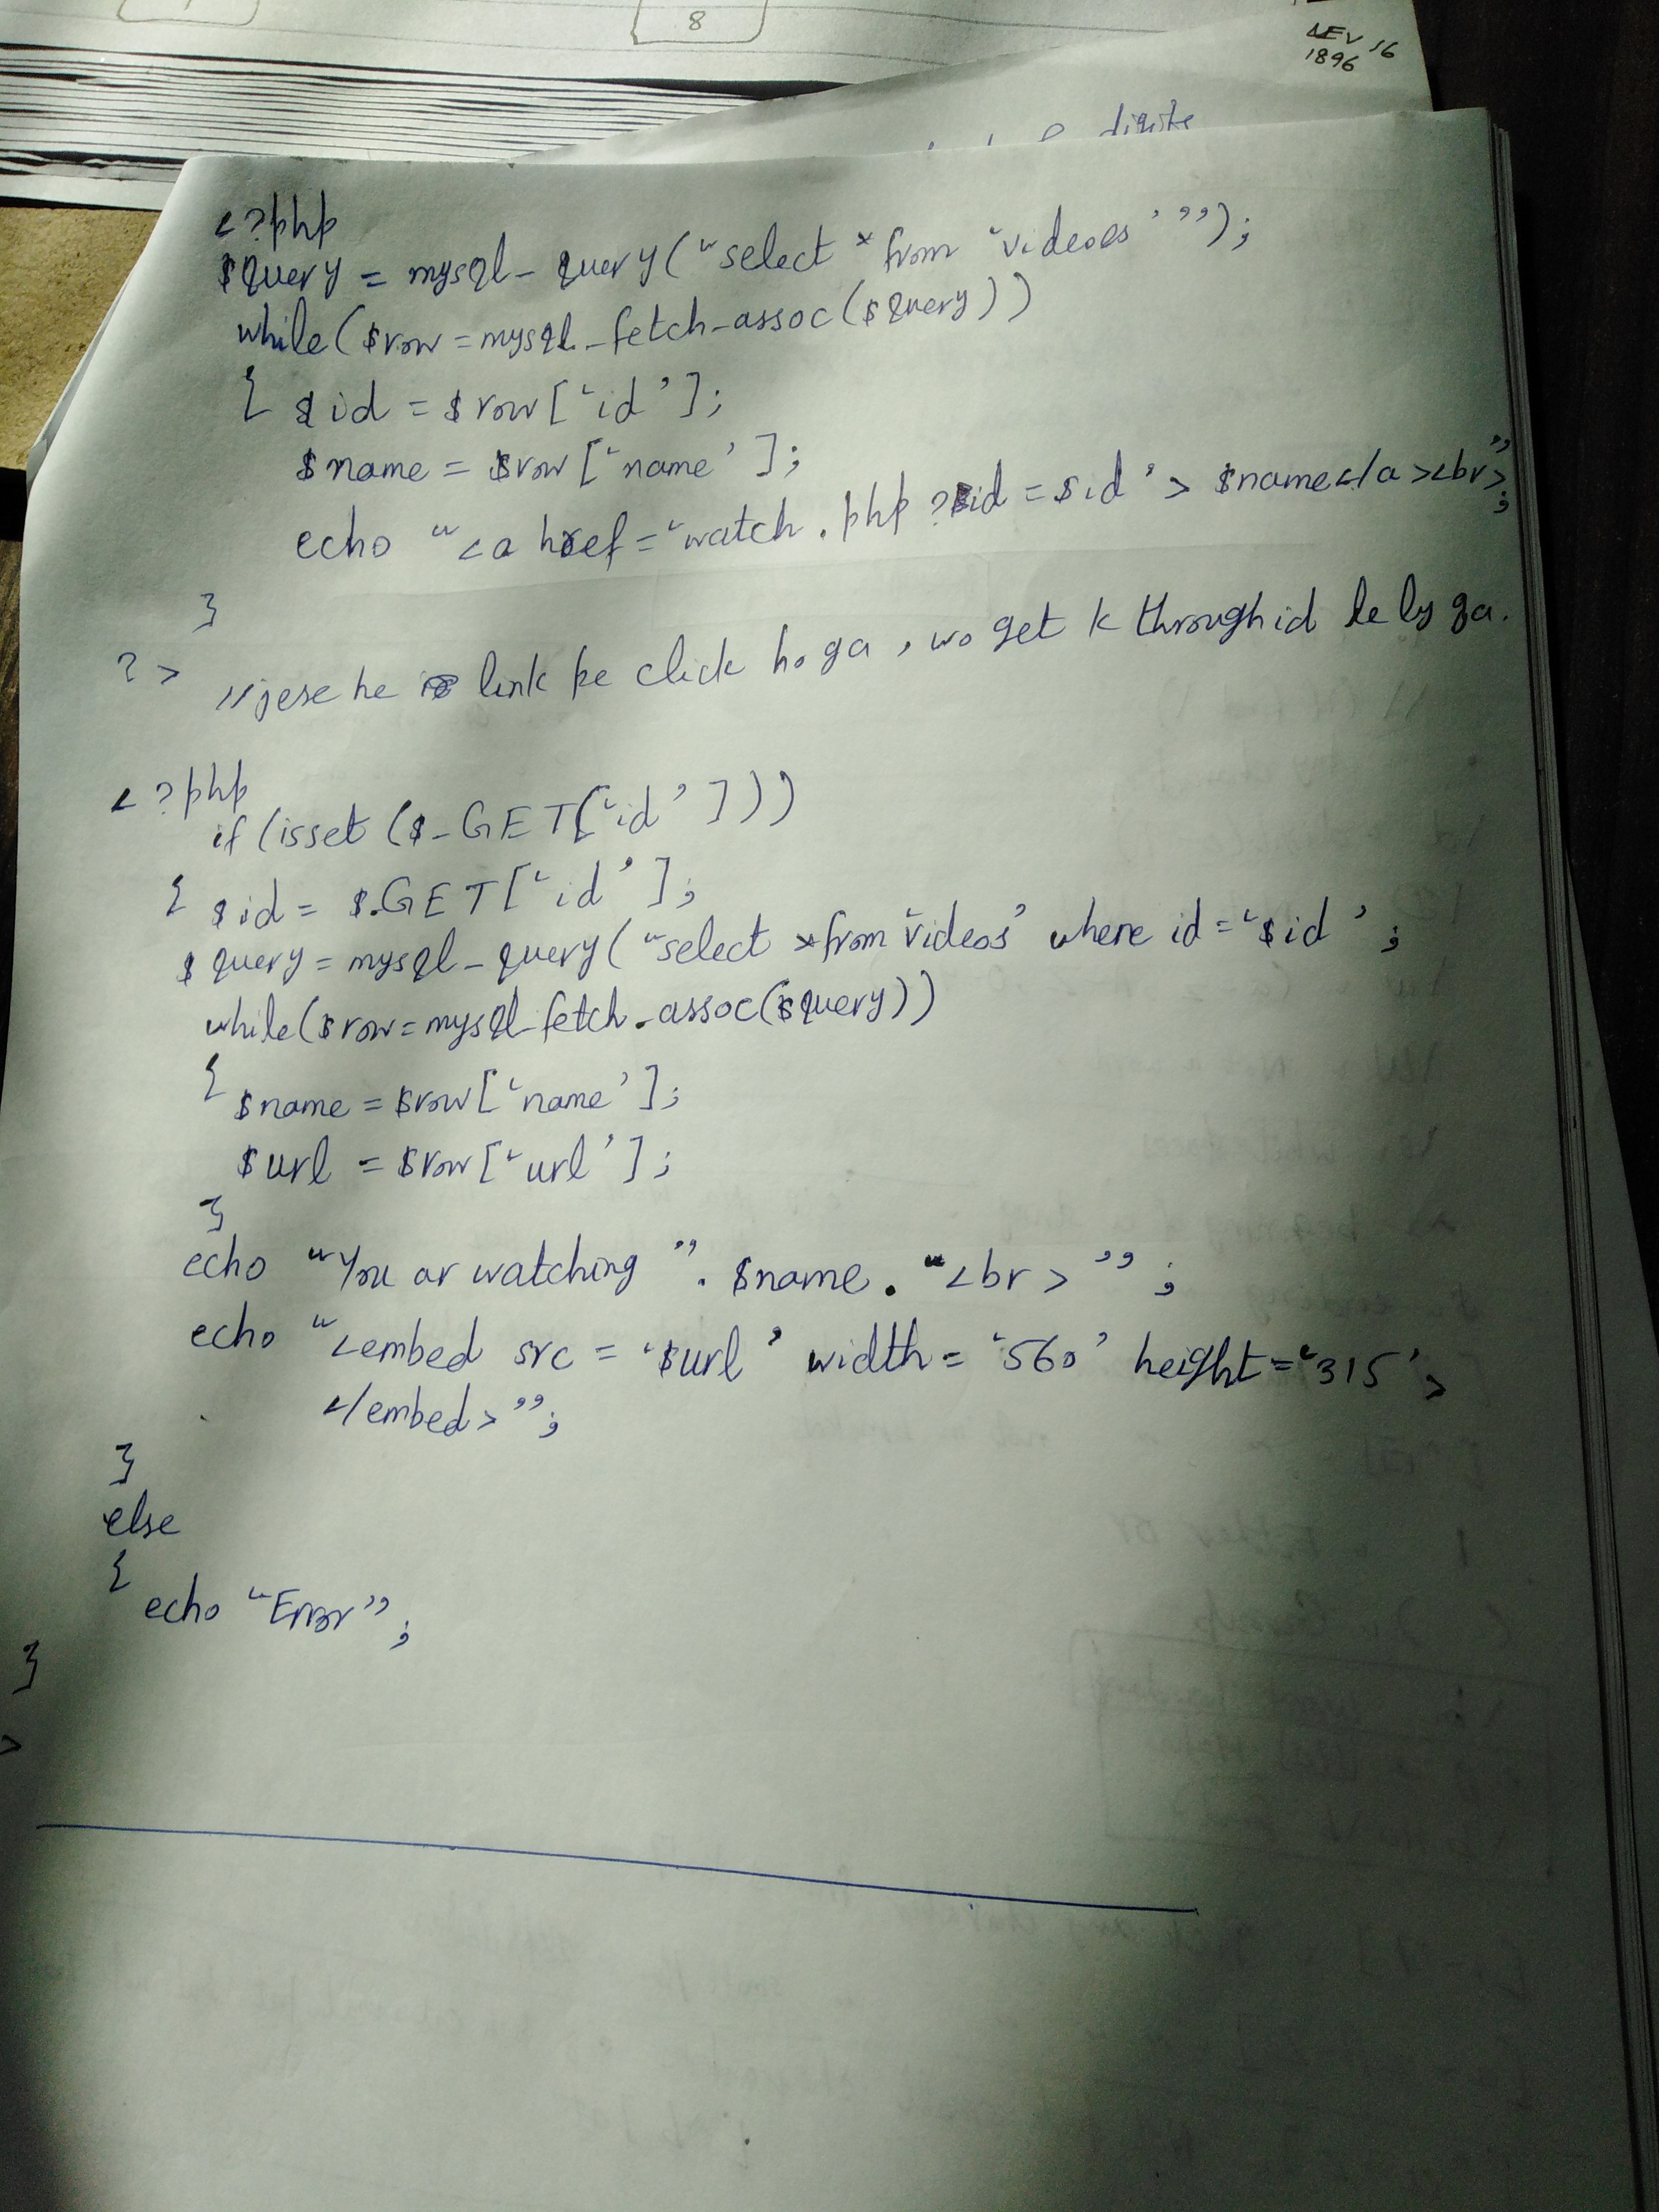 8
1896
16
digits
<?php
$query = mysql_query("select * from 'videoes'");
while($row=mysql_fetch_assoc($query))
{ $id = $row['id'];
$name = $row['name'];
echo "<a href='watch.php?id=$id'>$name</a><br>";
}
?>
//jese he link pe click hoga, wo get k through id le ly ga.
<?php
if(isset($_GET['id']))
{ $id = $_GET['id'];
$query = mysql_query("select * from 'videos' where id='$id';
while($row=mysql_fetch_assoc($query))
{ $name = $row['name'];
$url = $row['url'];
}
echo "You ar watching". $name. "<br>";
echo "<embed src = '$url' width='560' height='315'>
</embed>";
}
else
{
echo "Error";
}
>